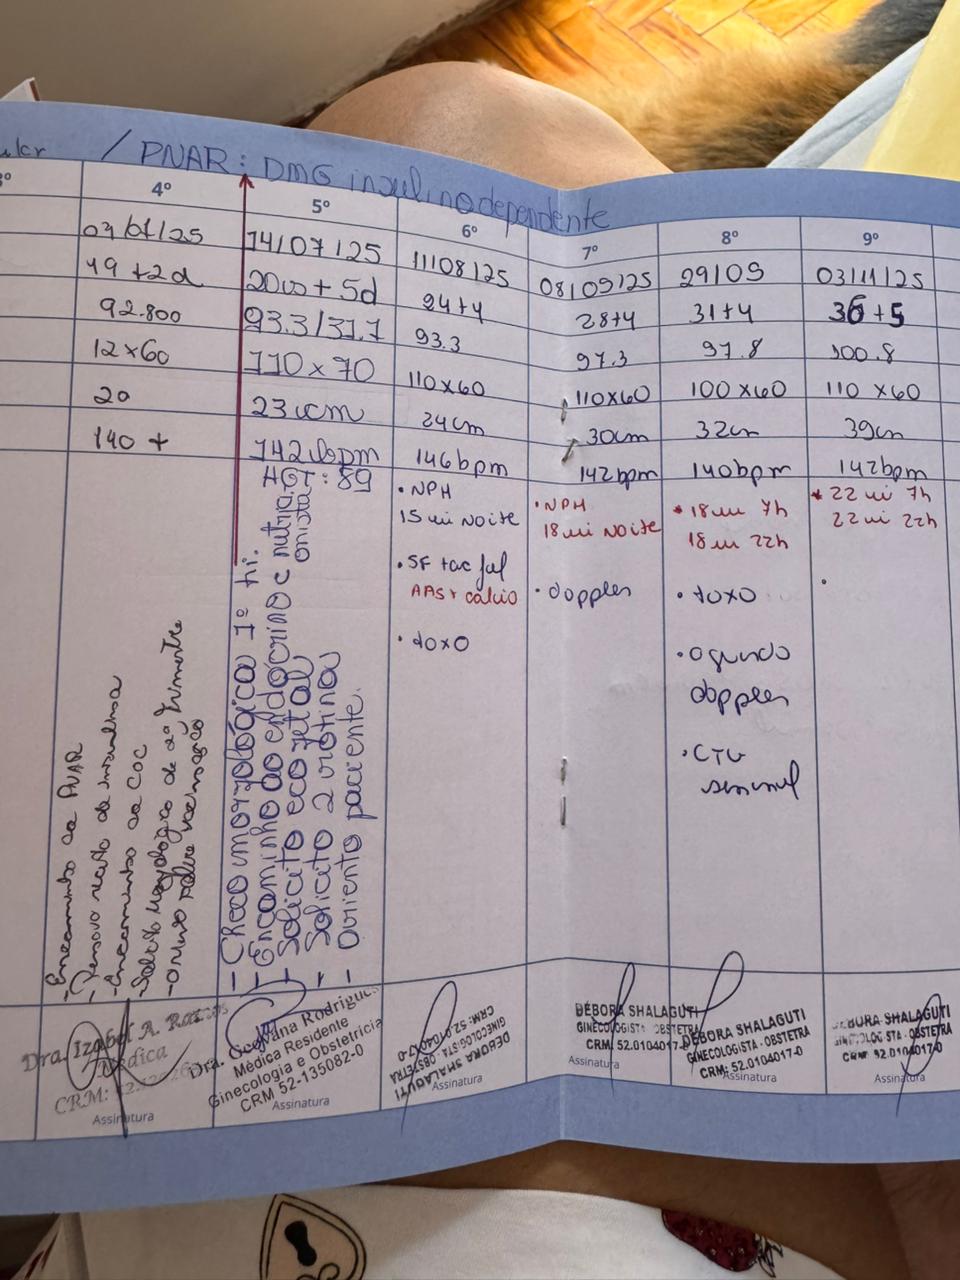 / PNAR: DMG insulinodependente
4º
19+2d
92.800
12x60
20
140 +
- Encaminho ao PNAR
- Renovo receita de insulina
- Encaminho ao COC
- Solicito de 2º trimestre
- Oriento sobre vacinação
Dra. Izabel A.
Médica
CRM:
Assinatura
5º
14/07/25
20w + 5d
93.3/31.7
110x70
23cm
142bpm
HGT: 89
- Checo morfológica 1º tri.
- Encaminho ao endócrino e nutricionista
- Solicito eco fetal
- Solicito 2ª rotina
- Oriento paciente.
Dra. Geovana Rodrigues
Médica Residente
Ginecologia e Obstetrícia
CRM 52-135082-0
Assinatura
6º
11/08/25
24+4
93.3
110x60
24cm
146bpm
• NPH
15 ui noite
• SF tac fol
AAS + cálcio
• toxo
DÉBORA SHALAGUTI
GINECOLOGISTA - OBSTETRA
CRM: 52.0104017-0
Assinatura
7º
08/09/25
28+4
97.3
110x60
30cm
142bpm
• NPH
18 ui noite
• doppler
DÉBORA SHALAGUTI
GINECOLOGISTA - OBSTETRA
CRM: 52.0104017-0
Assinatura
8º
29/09
31+4
97.8
100x60
32cm
140bpm
* 18 ui 7h
18 ui 22h
• toxo
• agendo
doppler
• CTG
semanal
DÉBORA SHALAGUTI
GINECOLOGISTA - OBSTETRA
CRM: 52.0104017-0
Assinatura
9º
03/11/25
36+5
100.8
110x60
39cm
142bpm
* 22 ui 7h
22 ui 22h
DÉBORA SHALAGUTI
GINECOLOGISTA - OBSTETRA
CRM 52.0104017-0
Assinatura